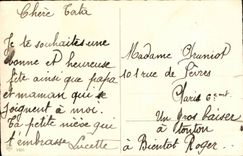 Chère Tata
Je te souhaites une
bonne et heureuse
fête ainsi que papa
et maman qui se
joignent à moi.
Ta petite nièce qui
t'embrasse Lucette
Madame Pruniot
101 rue de Sèvres
Paris 6
Un gros baiser
à tonton
à Bientôt Roger